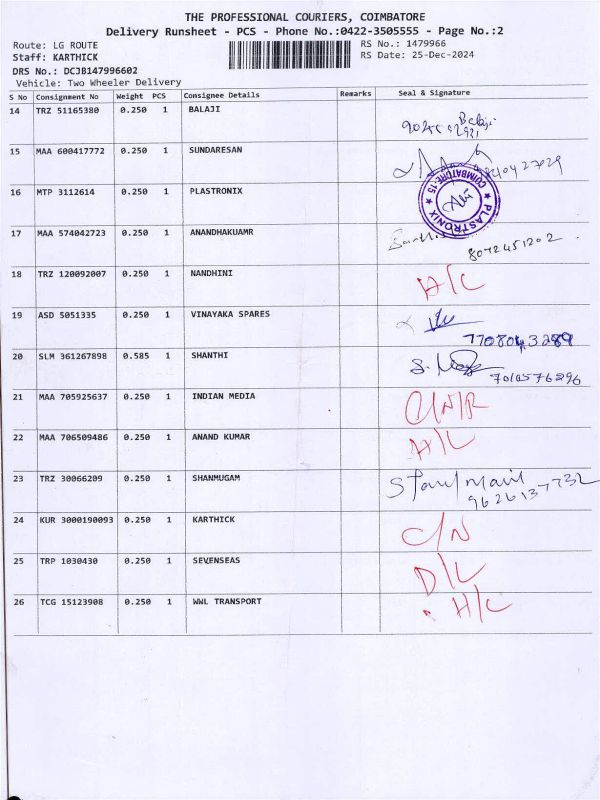 THE PROFESSIONAL COURIERS, COIMBATORE
Delivery Runsheet - PCS - Phone No.:0422-3505555 - Page No.:2
Route: LG ROUTE RS No.: 1479966
Staff: KARTHICK RS Date: 25-Dec-2024
DRS No.: DCJB147996602
Vehicle: Two Wheeler Delivery
S No Consignment No Weight PCS Consignee Details Remarks Seal & Signature
14 TRZ 51165380 0.250 1 BALAJI Balaji
15 MAA 600417772 0.250 1 SUNDARESAN
16 MTP 3112614 0.250 1 PLASTRONIX PLASTRONIX ★ COIMBATORE-15 ★
17 MAA 574042723 0.250 1 ANANDHAKUAMR 8072451202
18 TRZ 120092007 0.250 1 NANDHINI H/C
19 ASD 5051335 0.250 1 VINAYAKA SPARES 7708043289
20 SLM 361267898 0.585 1 SHANTHI 7010576296
21 MAA 705925637 0.250 1 INDIAN MEDIA C/N/R
22 MAA 706509486 0.250 1 ANAND KUMAR H/L
23 TRZ 30066209 0.250 1 SHANMUGAM 9626137732
24 KUR 3000190093 0.250 1 KARTHICK C/N
25 TRP 1030430 0.250 1 SEVENSEAS D/L
26 TCG 15123908 0.250 1 WWL TRANSPORT H/C